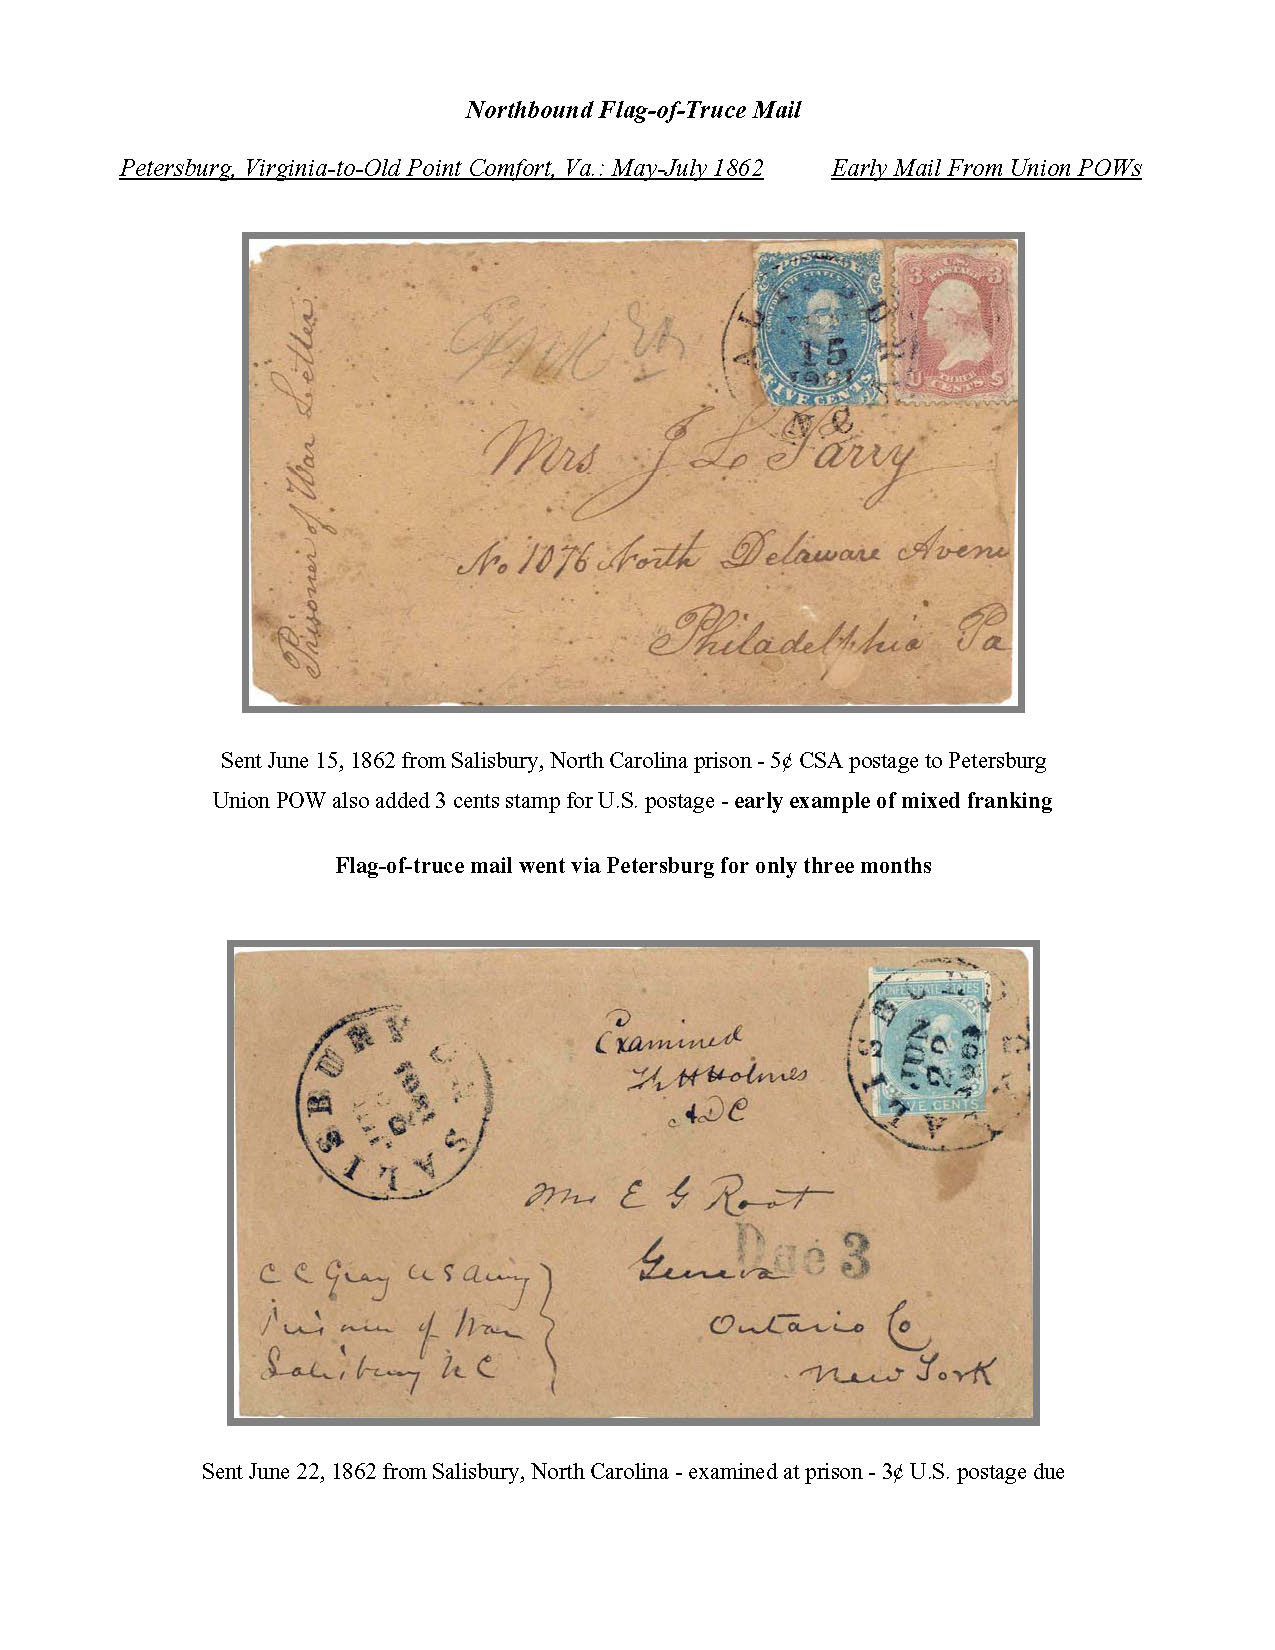 Northbound Flag-of-Truce Mail
Petersburg, Virginia-to-Old Point Comfort, Va.: May-July 1862
Early Mail From Union POWs
Prisoner of War Letter
POSTAGE
CONFEDERATE STATES OF AMERICA
FIVE CENTS
U.S.
POSTAGE
3 3
U THREE S
CENTS
15
N C
Mrs J L Parry
No 1076 North Delaware Avenu
Philadelphia Pa
Sent June 15, 1862 from Salisbury, North Carolina prison - 5¢ CSA postage to Petersburg
Union POW also added 3 cents stamp for U.S. postage - early example of mixed franking
Flag-of-truce mail went via Petersburg for only three months
SALISBURY
CONFEDERATE STATES
FIVE CENTS
SALISBURY
JUN
22
Examined
Holmes
ADC
Mrs E G Root
Due 3
Geneva
Ontario Co
New York
C C Gray U S Army
Prisoner of War
Salisbury N C
Sent June 22, 1862 from Salisbury, North Carolina - examined at prison - 3¢ U.S. postage due